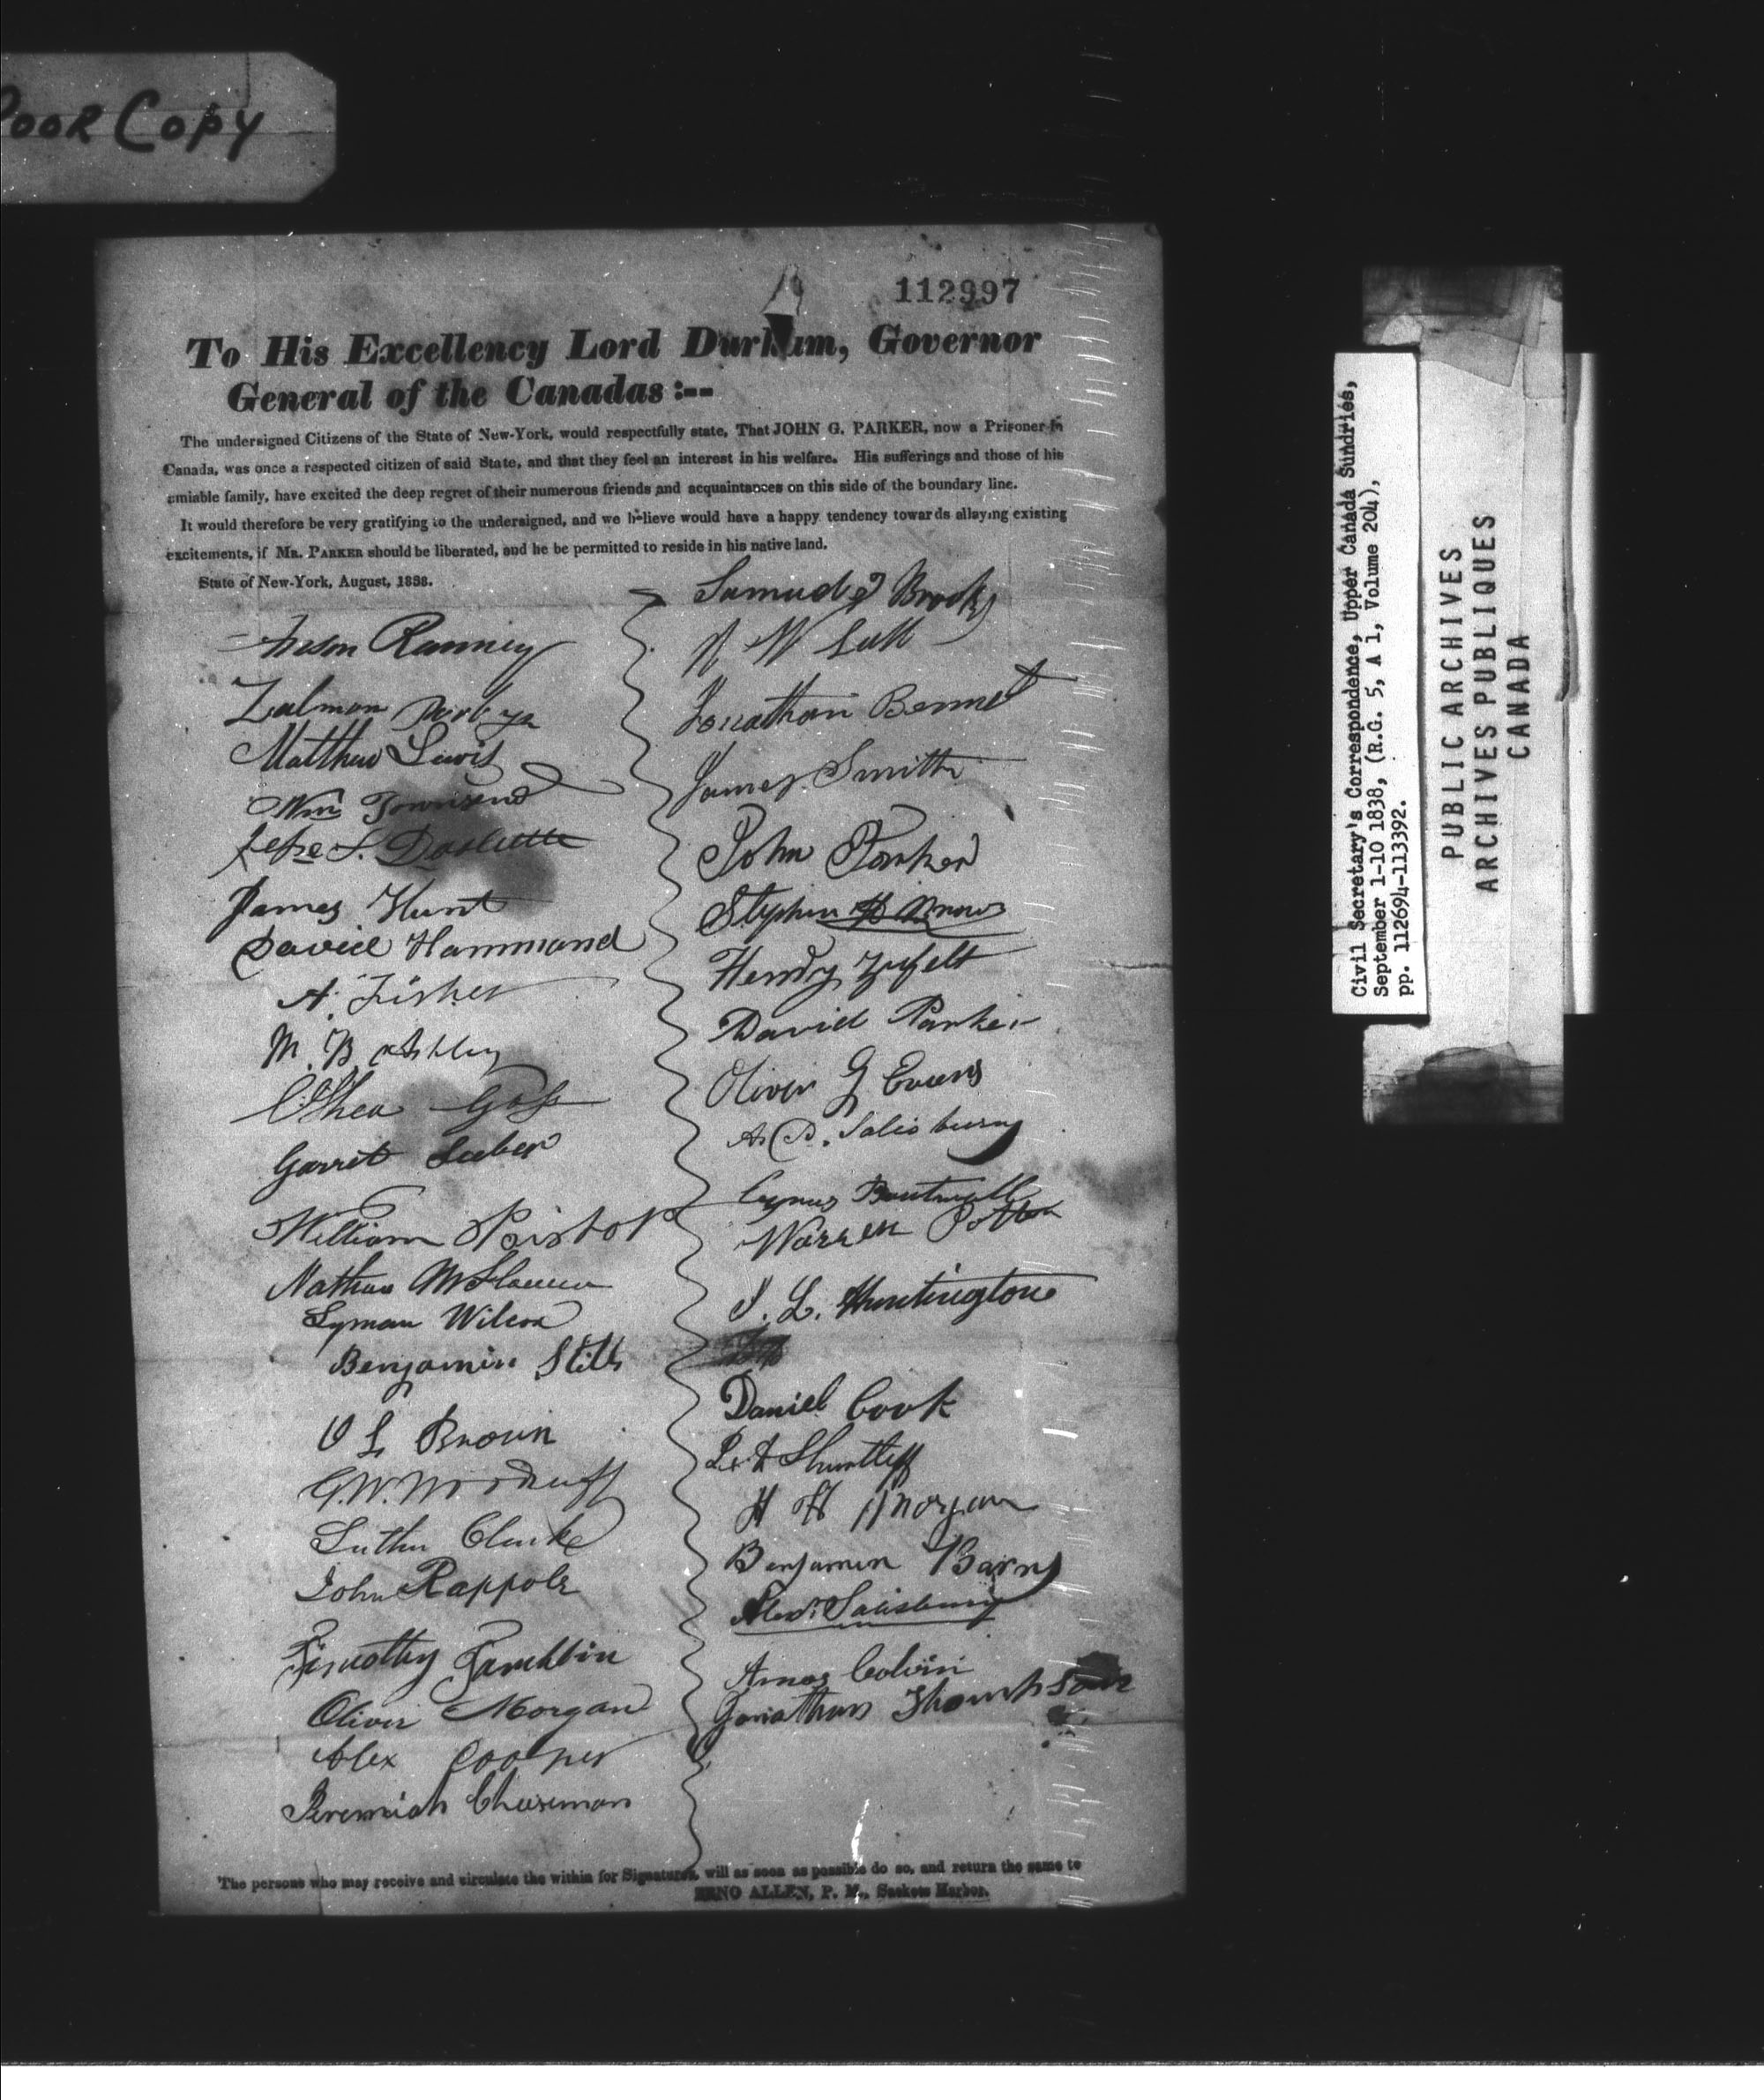 Poor Copy
112997
To His Excellency Lord Durham, Governor
General of the Canadas :--
The undersigned Citizens of the State of New-York, would respectfully state, That JOHN G. PARKER, now a Prisoner in
Canada, was once a respected citizen of said State, and that they feel an interest in his welfare. His sufferings and those of his
amiable family, have excited the deep regret of their numerous friends and acquaintances on this side of the boundary line.
It would therefore be very gratifying to the undersigned, and we believe would have a happy tendency towards allaying existing
excitements, if MR. PARKER should be liberated, and he be permitted to reside in his native land.
State of New-York, August, 1838.
Anson Ranney
Zalmon
Matthew Lewis
Wm Townsend
Jesse S.
James Hunt
David Hammond
A. Fisher
M. B. Ashley
Goss
Garret Seeber
William Bishop
Nathan
Lyman Wilcox
Benjamin
O L Brown
G. W. Woodruff
Luther Clarke
John Rappole
Timothy
Oliver Morgan
Alex Cooper
Jeremiah Cheeseman
Samuel Brooks
N W
Jonathan Bennet
James Smith
John Parker
Stephen Brown
Henry Zufelt
David Parker
Oliver G Evans
A. D. Salisbury
Cyrus Boutwell
Warren Potter
J. L. Huntington
Daniel Cook
Shurtleff
H H Morgan
Benjamin Barns
Alexr. Salisbury
Amos Colvin
Jonathan Thompson
The persons who may receive and circulate the within for Signatures, will as soon as possible do so, and return the same to
ZENO ALLEN, P. M., Sackets Harbor.
Civil Secretary's Correspondence, Upper Canada Sundries,
September 1-10 1838, (R.G. 5, A 1, Volume 204),
pp. 112694-113392.
PUBLIC ARCHIVES
ARCHIVES PUBLIQUES
CANADA